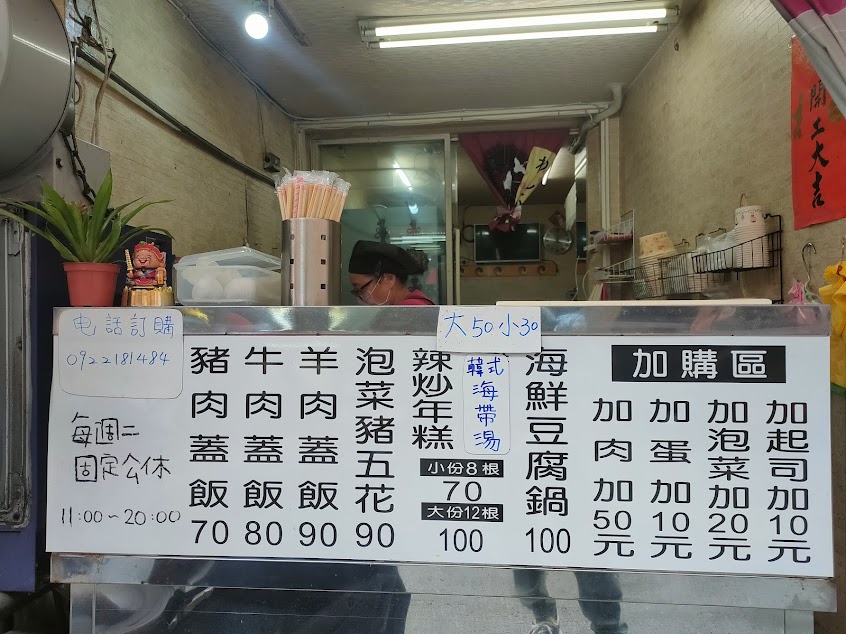 開工大吉
电话訂購
0922181484
每週二
固定公休
11:00~20:00
豬肉蓋飯
70
牛肉蓋飯
80
羊肉蓋飯
90
泡菜豬五花
90
辣炒年糕
小份8根
70
大份12根
100
大50小30
韓式
海帶湯
海鮮豆腐鍋
100
加購區
加肉加50元
加蛋加10元
加泡菜加20元
加起司加10元